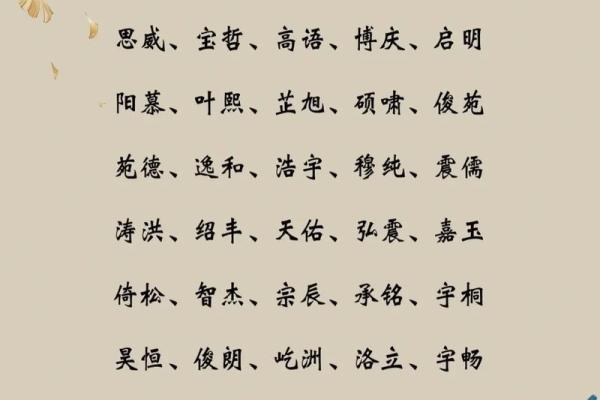 思威、宝哲、高语、博庆、启明
阳慕、叶熙、芷旭、硕啸、俊苑
苑德、逸和、浩宇、穆纯、震儒
涛洪、绍丰、天佑、弘震、嘉玉
倚松、智杰、宗辰、承铭、宇桐
昊恒、俊朗、屹洲、洛立、宇畅